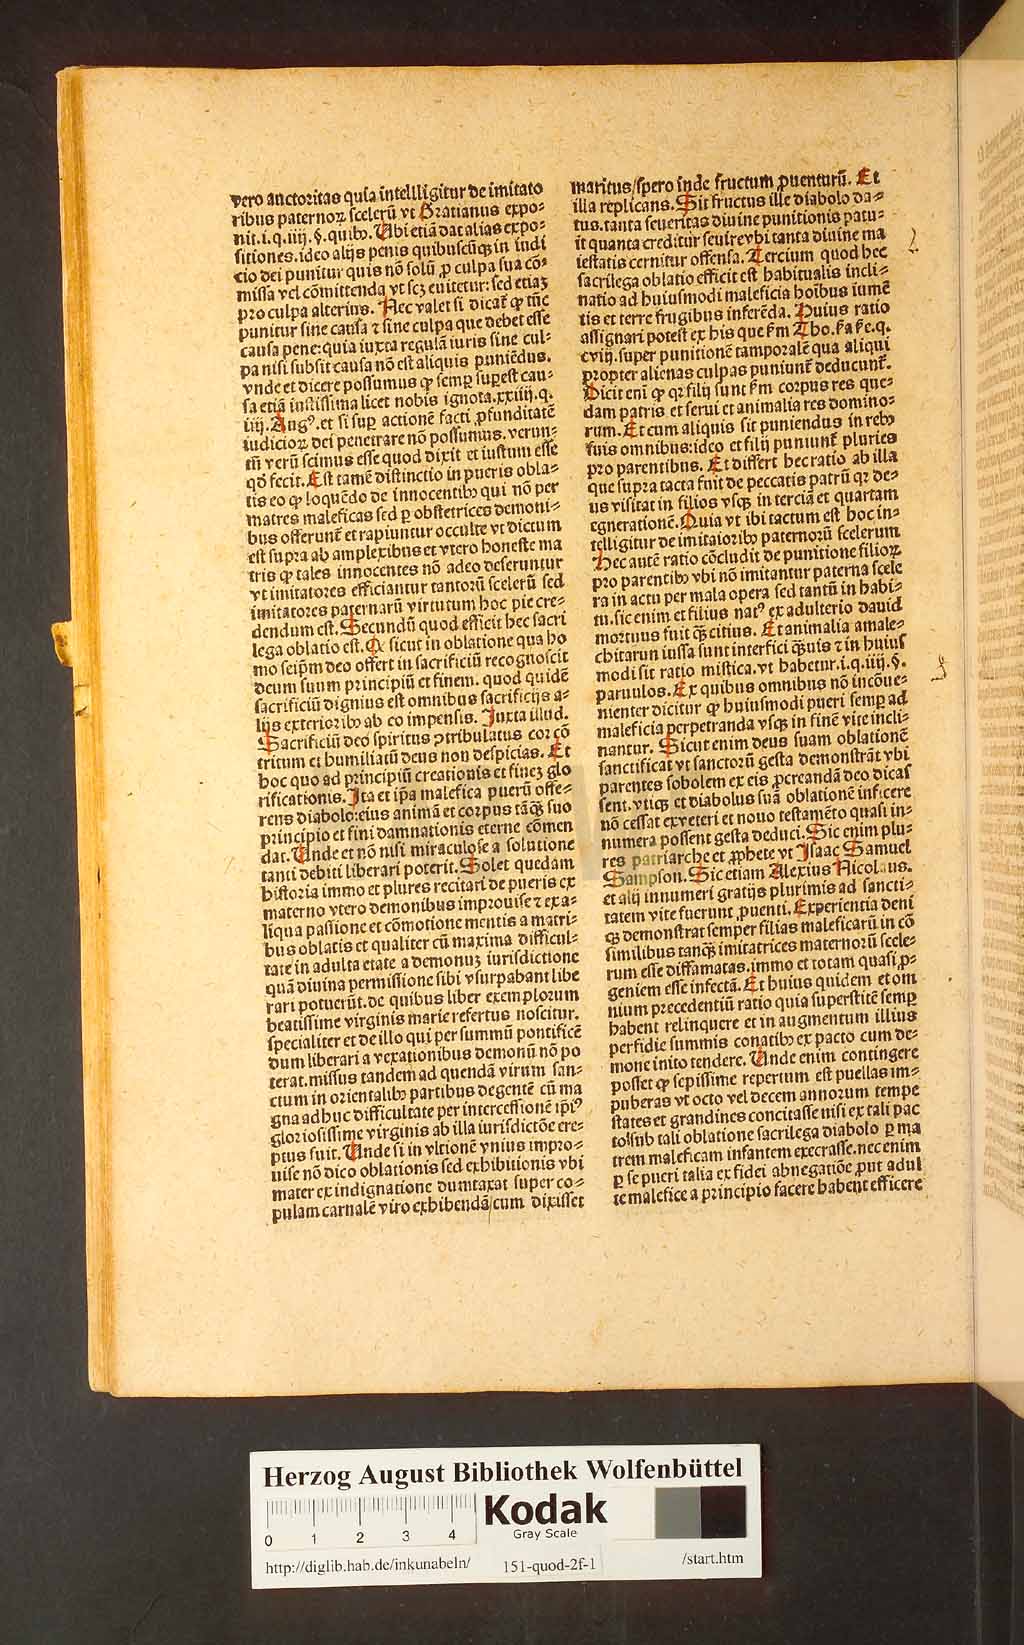 vero auctoritas quia intellligitur de imitato
ribus paternoꝝ sceleꝝ vt Gratianus expo⸗
nit.i.q.iiij.§.quibꝰ. Ubi etiā dat alias expo⸗
sitiones.ideo alijs penis quibuscūqꝫ in iudi
cio dei punitur quis nō solū ꝓ culpa sua cō⸗
missa vel cōmittenda vt scꝫ euitetur: sed etiaꝫ
pro culpa alterius. Nec valet si dicat̄ ꝙ tūc
punitur sine causa ⁊ sine culpa que debet esse
causa pene: quia iuxta regulā iuris sine cul⸗
pa nisi subsit causa nō est aliquis puniēdus.
vnde et dicere possumus ꝙ semꝑ suꝑest cau⸗
sa etiā iustissima licet nobis ignota.xxiiij.q.
iiij. Augꝰ. et si suꝑ actionē facti ꝓfunditatē
iudicioꝝ dei penetrare nō possumus. verun⸗
tū verū scimus esse quod dixit et iustum esse
qd̄ fecit. Est tamē distinctio in pueris obla⸗
tis eo ꝙ loquēdo de innocentibꝰ qui nō per
matres maleficas sed ꝑ obstetrices demoni⸗
bus offerunt̄ et rapiuntur occulte vt dictum
est supra ab amplexibus et vtero honeste ma
tris ꝙ tales innocentes nō adeo deseruntur
vt imitatores efficiantur tantorū scelerū sed
imitatores paternarū virtutum hoc pie cre⸗
dendum est. Secundū quod efficit hec sacri
lega oblatio est. Q sicut in oblatione qua ho
mo seip̄m deo offert in sacrificiū recognoscit
deum suum principiū et finem. quod quidē
sacrificiū dignius est omnibus sacrificijs a⸗
lijs exterioribꝰ ab eo impensis. Juxta illud.
Sacrificiū deo spiritus ꝯtribulatus cor cō
tritum et humiliatū deus non despicias. Et
hoc quo ad principiū creationis et fineꝫ glo
rificationis. Ita et ip̄a malefica puerū offe⸗
rens diabolo: eius animā et corpus tāqꝫ suo
principio et fini damnationis eterne cōmen
dat. Unde et nō nisi miraculose a solutione
tanti debiti liberari poterit. Solet quedam
historia immo et plures recitari de pueris ex
materno vtero demonibus improuise ⁊ exa⸗
liqua passione et cōmotione mentis a matri⸗
bus oblatis et qualiter cū maxima difficul⸗
tate in adulta etate a demonuꝫ iurisdictione
quā diuina permissione sibi vsurpabant libe
rari potuerūt. de quibus liber exemplorum
beatissime virginis marie refertus noscitur.
specialiter et de illo qui per summū pontificē
dum liberari a vexationibus demonū nō po
terat. missus tandem ad quendā virum san⸗
ctum in orientalibꝰ partibus degentē cū ma
gna adhuc difficultate per intercessionē ip̄iꝰ
gloriosissime virginis ab illa iurisdictōe ere⸗
ptus fuit. Unde si in vltionē vnius impro⸗
uise nō dico oblationis sed exhibitionis vbi
mater ex indignatione dumtaxat super co⸗
pulam carnalē viro exhibendā/cum dixisset
maritus/spero inde fructum ꝓuenturū. Et
illa replicans. Sit fructus ille diabolo da⸗
tus. tanta seueritas diuine punitionis patu⸗
it quanta creditur seuire vbi tanta diuine ma
iestatis cernitur offensa. Tercium quod hec
sacrilega oblatio efficit est habitualis incli⸗
natio ad huiusmodi maleficia hoībus iumē
tis et terre frugibus inferēda. Huius ratio
assignari potest ex his que ẜm Tho. ẜa ẜe.q.
cviij. super punitionē temporalē qua aliqui
propter alienas culpas puniunt̄ deducunt̄.
Dicit eni ꝙ qꝛ filij sunt ẜm corpus res que⸗
dam patris et serui et animalia res domino⸗
rum. Et cum aliquis sit puniendus in rebꝰ
suis omnibus: ideo et filij puniunt̄ pluries
pro parentibus. Et differt hec ratio ab illa
que supra tacta fuit de peccatis patrū qꝛ de⸗
us visitat in filios vsqꝫ in terciā et quartam
egnerationē. Quia vt ibi tactum est hoc in⸗
telligitur de imitaioribꝰ paternorū scelerum
Hec autē ratio cōcludit de punitione filioꝝ
pro parentibꝰ vbi nō imitantur paterna scele
ra in actu per mala opera sed tantū in habi⸗
tu. sic enim et filius natꝰ ex adulterio dauid
mortuus fuit qꝫ citius. Et animalia amale⸗
chitarun iussa sunt interfici qꝫuis ⁊ in huius
modi sit ratio mistica. vt habetur.i.q.iiij.§.
paruulos. Ex quibus omnibus nō incōue⸗
nienter dicitur ꝙ huiusmodi pueri semꝑ ad
maleficia perpetranda vsqꝫ in finē vite incli⸗
nantur. Sicut enim deus suam oblationē
sanctificat vt sanctorū gesta demonstrāt vbi
parentes sobolem ex eis ꝓcreandā deo dicas
sent. vtiqꝫ et diabolus suā oblationē inficere
nō cessat ex veteri et nouo testamēto quasi in⸗
numera possent gesta deduci. Sic enim plu⸗
res patriarche et ꝓphete vt Isaac Samuel
Sampson. Sic etiam Alexius Nicolaus.
et alij innumeri gratijs plurimis ad sancti⸗
tatem vite fuerunt ꝓuenti. Experientia deni
qꝫ demonstrat semper filias maleficarū in cō
similibus tanqꝫ imitatrices maternorū scele⸗
rum esse diffamatas. immo et totam quasi ꝓ⸗
geniem esse infectā. Et huius quidem et om
nium precedentiū ratio quia superstitē semꝑ
habent relinquere et in augmentum illius
perfidie summis conatibꝰ ex pacto cum de⸗
mone inito tendere. Unde enim contingere
posset ꝙ sepissime repertum est puellas im⸗
puberas vt octo vel decem annorum tempe
states et grandines concitasse nisi ex tali pac
to/sub tali oblatione sacrilega diabolo ꝑ ma
trem maleficam infantem execrasse. nec enim
ꝑ se pueri talia ex fidei abnegatiōe ꝓut adul
te malefice a principio facere habent efficere
Herzog August Bibliothek Wolfenbüttel
0 1 2 3 4
Kodak
Gray Scale
http://diglib.hab.de/inkunabeln/ 151-quod-2f-1 /start.htm